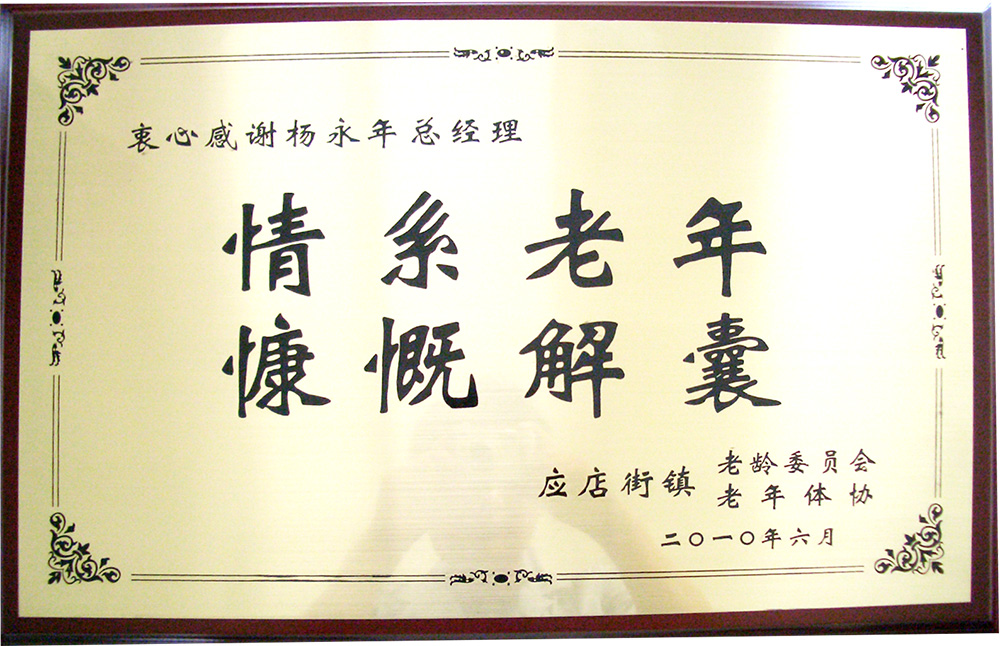 衷心感谢杨永年总经理
情系老年
慷慨解囊
应店街镇 老龄委员会
老年体协
二〇一〇年六月